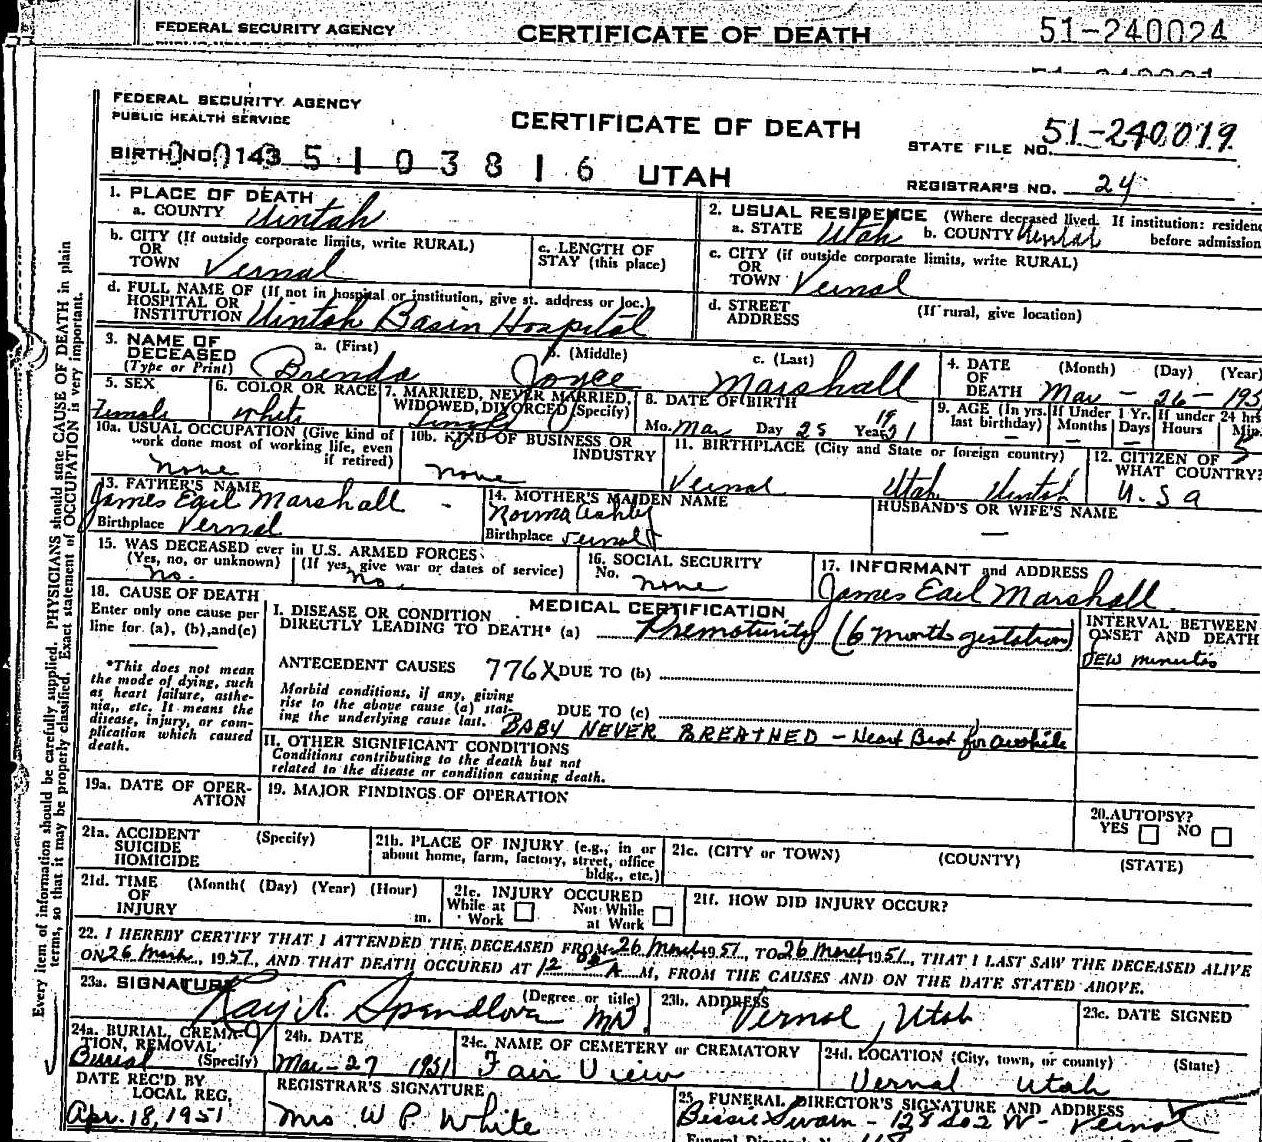 FEDERAL SECURITY AGENCY CERTIFICATE OF DEATH 51-240024
FEDERAL SECURITY AGENCY
PUBLIC HEALTH SERVICE
CERTIFICATE OF DEATH
STATE FILE NO. 51-240019
BIRTH NO. 143 5 1 0 3 8 1 6 UTAH
REGISTRAR'S NO. 24
1. PLACE OF DEATH
a. COUNTY Uintah
2. USUAL RESIDENCE (Where deceased lived. If institution: residence
a. STATE Utah b. COUNTY Uintah before admission
b. CITY (If outside corporate limits, write RURAL)
OR
TOWN Vernal
c. LENGTH OF
STAY (this place)
c. CITY (if outside corporate limits, write RURAL)
OR
TOWN Vernal
d. FULL NAME OF (If not in hospital or institution, give st. address or loc.)
HOSPITAL OR
INSTITUTION Uintah Basin Hospital
d. STREET
ADDRESS
(If rural, give location)
3. NAME OF
DECEASED
(Type or Print)
a. (First) b. (Middle) c. (Last)
Brenda Joyce Marshall
4. DATE
OF
DEATH
(Month) (Day) (Year)
Mar - 26 - 195
5. SEX
Female
6. COLOR OR RACE
white
7. MARRIED, NEVER MARRIED,
WIDOWED, DIVORCED (Specify)
Single
8. DATE OF BIRTH
Mo. Mar Day Year 19
9. AGE (In yrs.
last birthday)
If Under 1 Yr.
Months Days
If under 24 hrs
Hours Min.
— — — — 5
10a. USUAL OCCUPATION (Give kind of
work done most of working life, even
if retired)
none
10b. KIND OF BUSINESS OR
INDUSTRY
none
11. BIRTHPLACE (City and State or foreign country)
Vernal Utah Uintah
12. CITIZEN OF
WHAT COUNTRY?
U.S a
13. FATHER'S NAME
James Earl Marshall
Birthplace Vernal
14. MOTHER'S MAIDEN NAME
Norma Ashby
Birthplace Vernal
HUSBAND'S OR WIFE'S NAME
—
15. WAS DECEASED ever in U.S. ARMED FORCES
(Yes, no, or unknown) (If yes, give war or dates of service)
no. no.
16. SOCIAL SECURITY
No. none
17. INFORMANT and ADDRESS
James Earl Marshall.
18. CAUSE OF DEATH
Enter only one cause per
line for (a), (b), and (c)
*This does not mean
the mode of dying, such
as heart failure, asthe-
nia, etc. It means the
disease, injury, or com-
plication which caused
death.
MEDICAL CERTIFICATION
I. DISEASE OR CONDITION
DIRECTLY LEADING TO DEATH* (a) Prematurity (6 months gestation)
INTERVAL BETWEEN
ONSET AND DEATH
FEW minutes
ANTECEDENT CAUSES 776X DUE TO (b)
Morbid conditions, if any, giving
rise to the above cause (a) stat-
ing the underlying cause last.
DUE TO (c)
BABY NEVER BREATHED - Heart Beat for awhile
II. OTHER SIGNIFICANT CONDITIONS
Conditions contributing to the death but not
related to the disease or condition causing death.
19a. DATE OF OPER-
ATION
19. MAJOR FINDINGS OF OPERATION
20. AUTOPSY?
YES NO
21a. ACCIDENT
SUICIDE
HOMICIDE
(Specify)
21b. PLACE OF INJURY (e.g., in or
about home, farm, factory, street, office
bldg., etc.)
21c. (CITY or TOWN) (COUNTY) (STATE)
21d. TIME
OF
INJURY
(Month( (Day) (Year) (Hour)
m.
21e. INJURY OCCURED
While at
Work
Not While
at Work
21f. HOW DID INJURY OCCUR?
22. I HEREBY CERTIFY THAT I ATTENDED THE DECEASED FROM 26 March 1951, TO 26 March 1951, THAT I LAST SAW THE DECEASED ALIVE
ON 26 March, 1951, AND THAT DEATH OCCURED AT 12 A M, FROM THE CAUSES AND ON THE DATE STATED ABOVE.
23a. SIGNATURE (Degree or title)
Ray R. Spendlove MD.
23b. ADDRESS
Vernal, Utah
23c. DATE SIGNED
24a. BURIAL, CREMA-
TION, REMOVAL
(Specify)
Burial
24b. DATE
Mar - 27 1951
24c. NAME OF CEMETERY or CREMATORY
Fair View
24d. LOCATION (City, town, or county) (State)
Vernal Utah
DATE REC'D BY
LOCAL REG,
Apr. 18, 1951
REGISTRAR'S SIGNATURE
Mrs W P. White
25. FUNERAL DIRECTOR'S SIGNATURE AND ADDRESS
Bessie Swain - W - Vernal
Every item of information should be carefully supplied. PHYSICIANS should state CAUSE OF DEATH in plain
terms, so that it may be properly classified. Exact statement of OCCUPATION is very important.